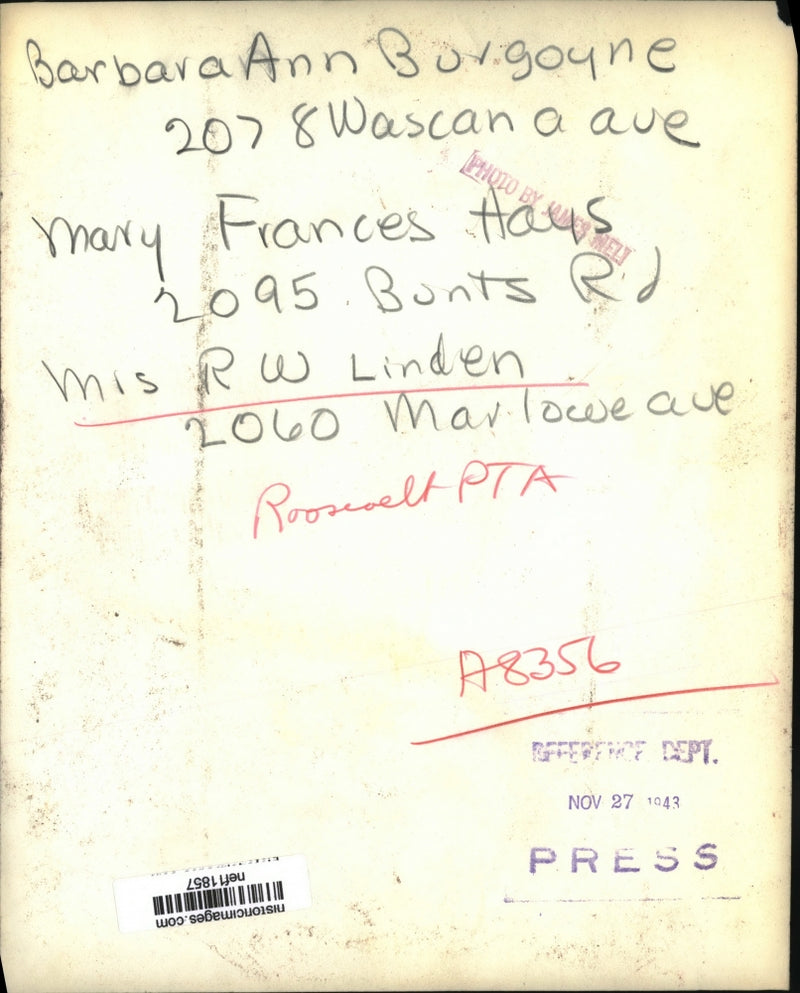 Barbara Ann Burgoyne
2078 Wascana ave
PHOTO BY JAMES MELI
Mary Frances Hays
2095 Bunts Rd
Mrs R W Linden
2060 Marlowe ave
Roosevelt PTA
A8356
REFERENCE DEPT.
NOV 27 1943
PRESS
nef11857
historicimages.com